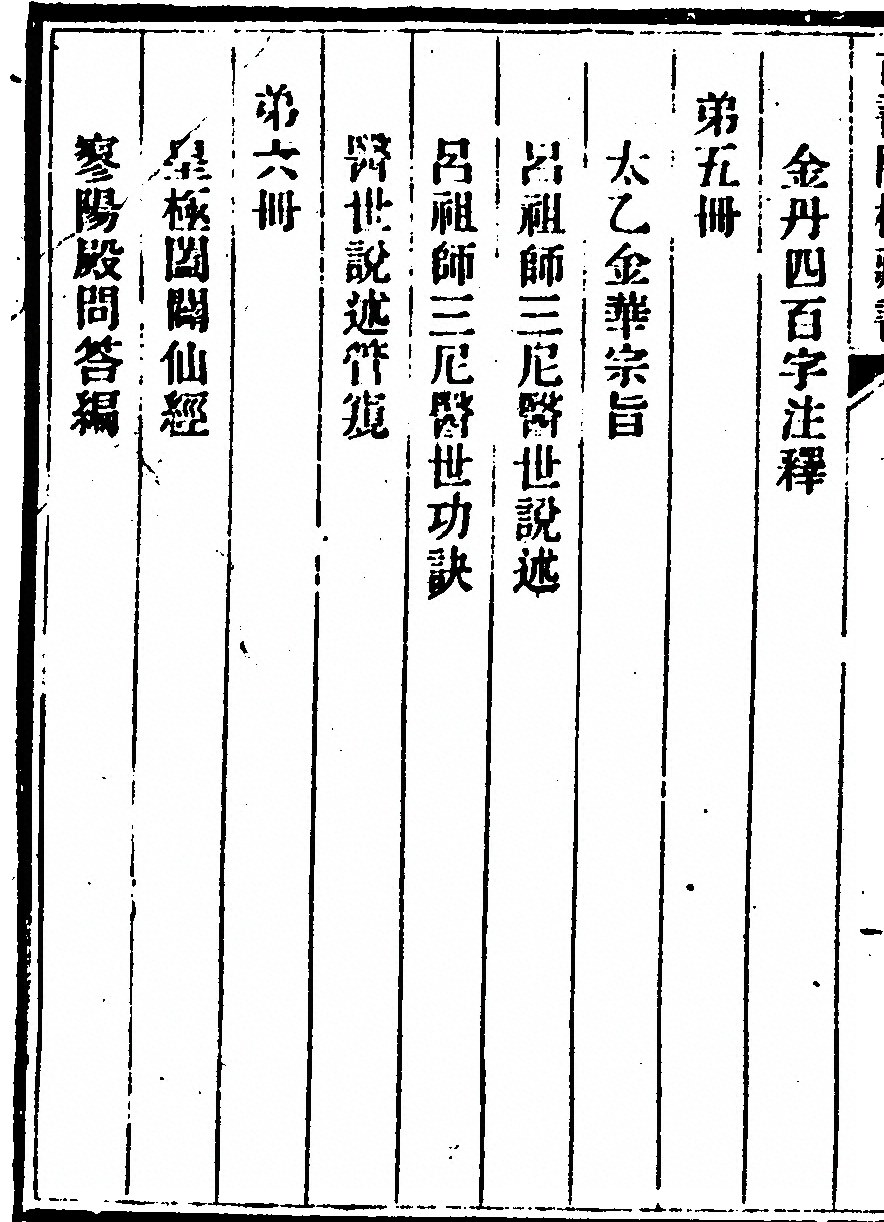 金丹四百字注釋
弟五冊
太乙金華宗旨
呂祖師三尼醫世說述
呂祖師三尼醫世功訣
醫世說述管窺
弟六冊
皇極闔闢仙經
寥陽殿問答編